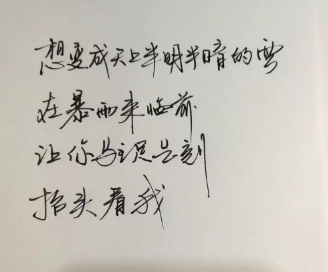 想变成天上半明半暗的雲
在暴雨来临前
让你驻足片刻
抬头看我